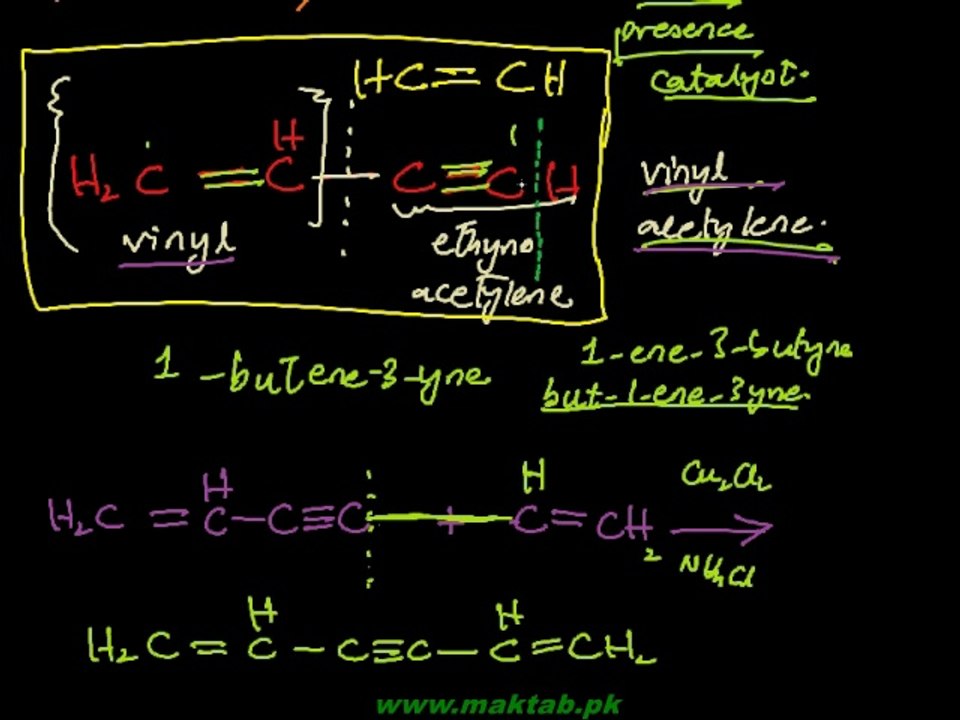 presence
catalyst.
HC = CH
H
H₂C = C — C ≡ C H
vinyl
ethyno
acetylene
vinyl
acetylene.
1-butene-3-yne
1-ene-3-butyne
but-1-ene-3yne.
H
H₂C = C — C ≡ C + C = CH₂
H
Cu₂Cl₂
NH₄Cl
H H
H₂C = C — C ≡ C — C = CH₂
www.maktab.pk